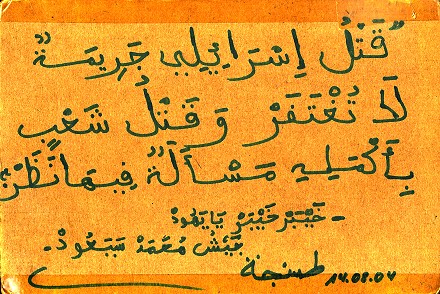 "قَتْلُ إِسْرَائِيلِي جَرِيمَةٌ
لَا تُغْتَفَرْ وَقَتْلُ شَعْبٍ
بِأَكْمَلِهِ مَسْأَلَةٌ فِيهَا نَظَرْ"
- خَيْبَرْ خَيْبَرْ يَا يَهُودْ
جَيْشُ مُحَمَّدْ سَيَعُودْ -
طنجة 14.08.04